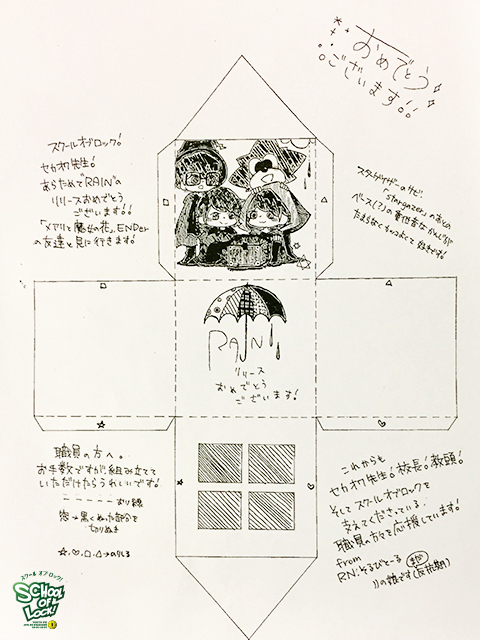 おめでとう
ございます!!
スクールオブロック!
セカオワ先生!
あらためて"RAIN"の
リリースおめでとう
ございます!!
「メアリと魔女の花」、ENDer
の友達と見に行きます!
スターゲイザーのサビ
「stargazer」のあとの
RAIN
リリース
おめでとう
ございます!
職員の方へ。
お手数ですが、組み立てて
いただけたらうれしいです!
------おり線
窓→黒くぬった部分を
切りぬき
☆,♡,□,△→のりしろ
これからも
セカオワ先生!校長!教頭!
そしてスクールオブロックを
支えてくださっている
職員の方々を応援しています!
from
RN:そるびとーる
スクール オブ ロック!
SCHOOL
OF
LOCK!